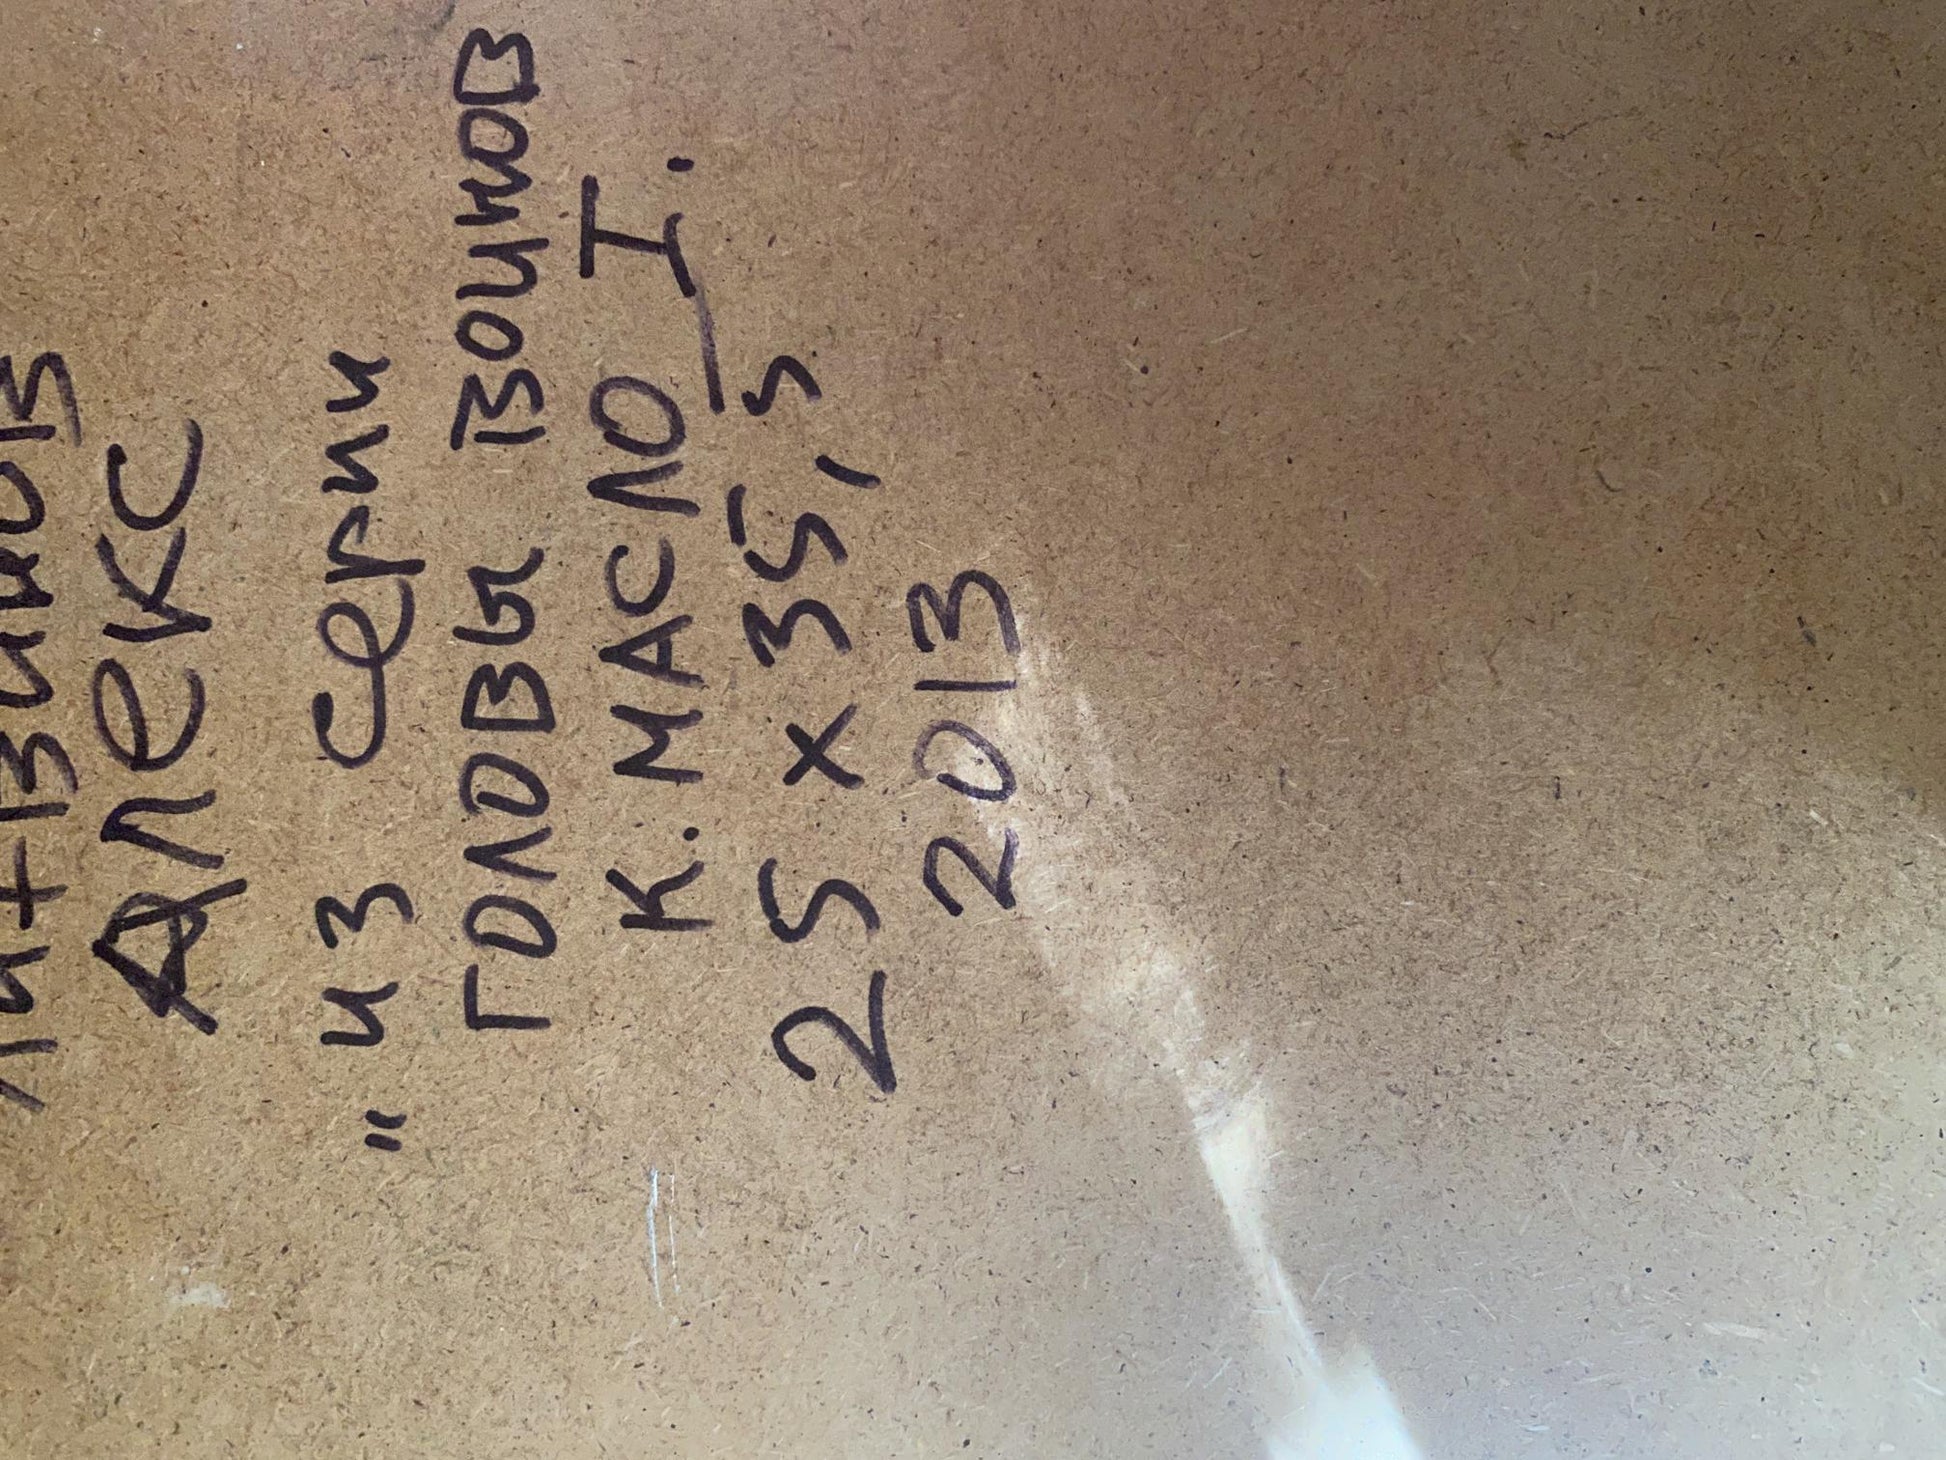 Литвинов
Алекс
"из серии
головы воинов
I.
к. масло
25 x 35,5
2013